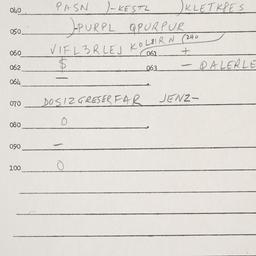 040 PASN )-KESTL )KLETKPES
050 )-PURPL QPURPUR
060 VIFL3RLEJ KOLBIRN (240
062 $ 061 +
064 — 063 — QALERLE
070 DOSIZGRESERFAR JENZ-
080 O
090 —
100 O